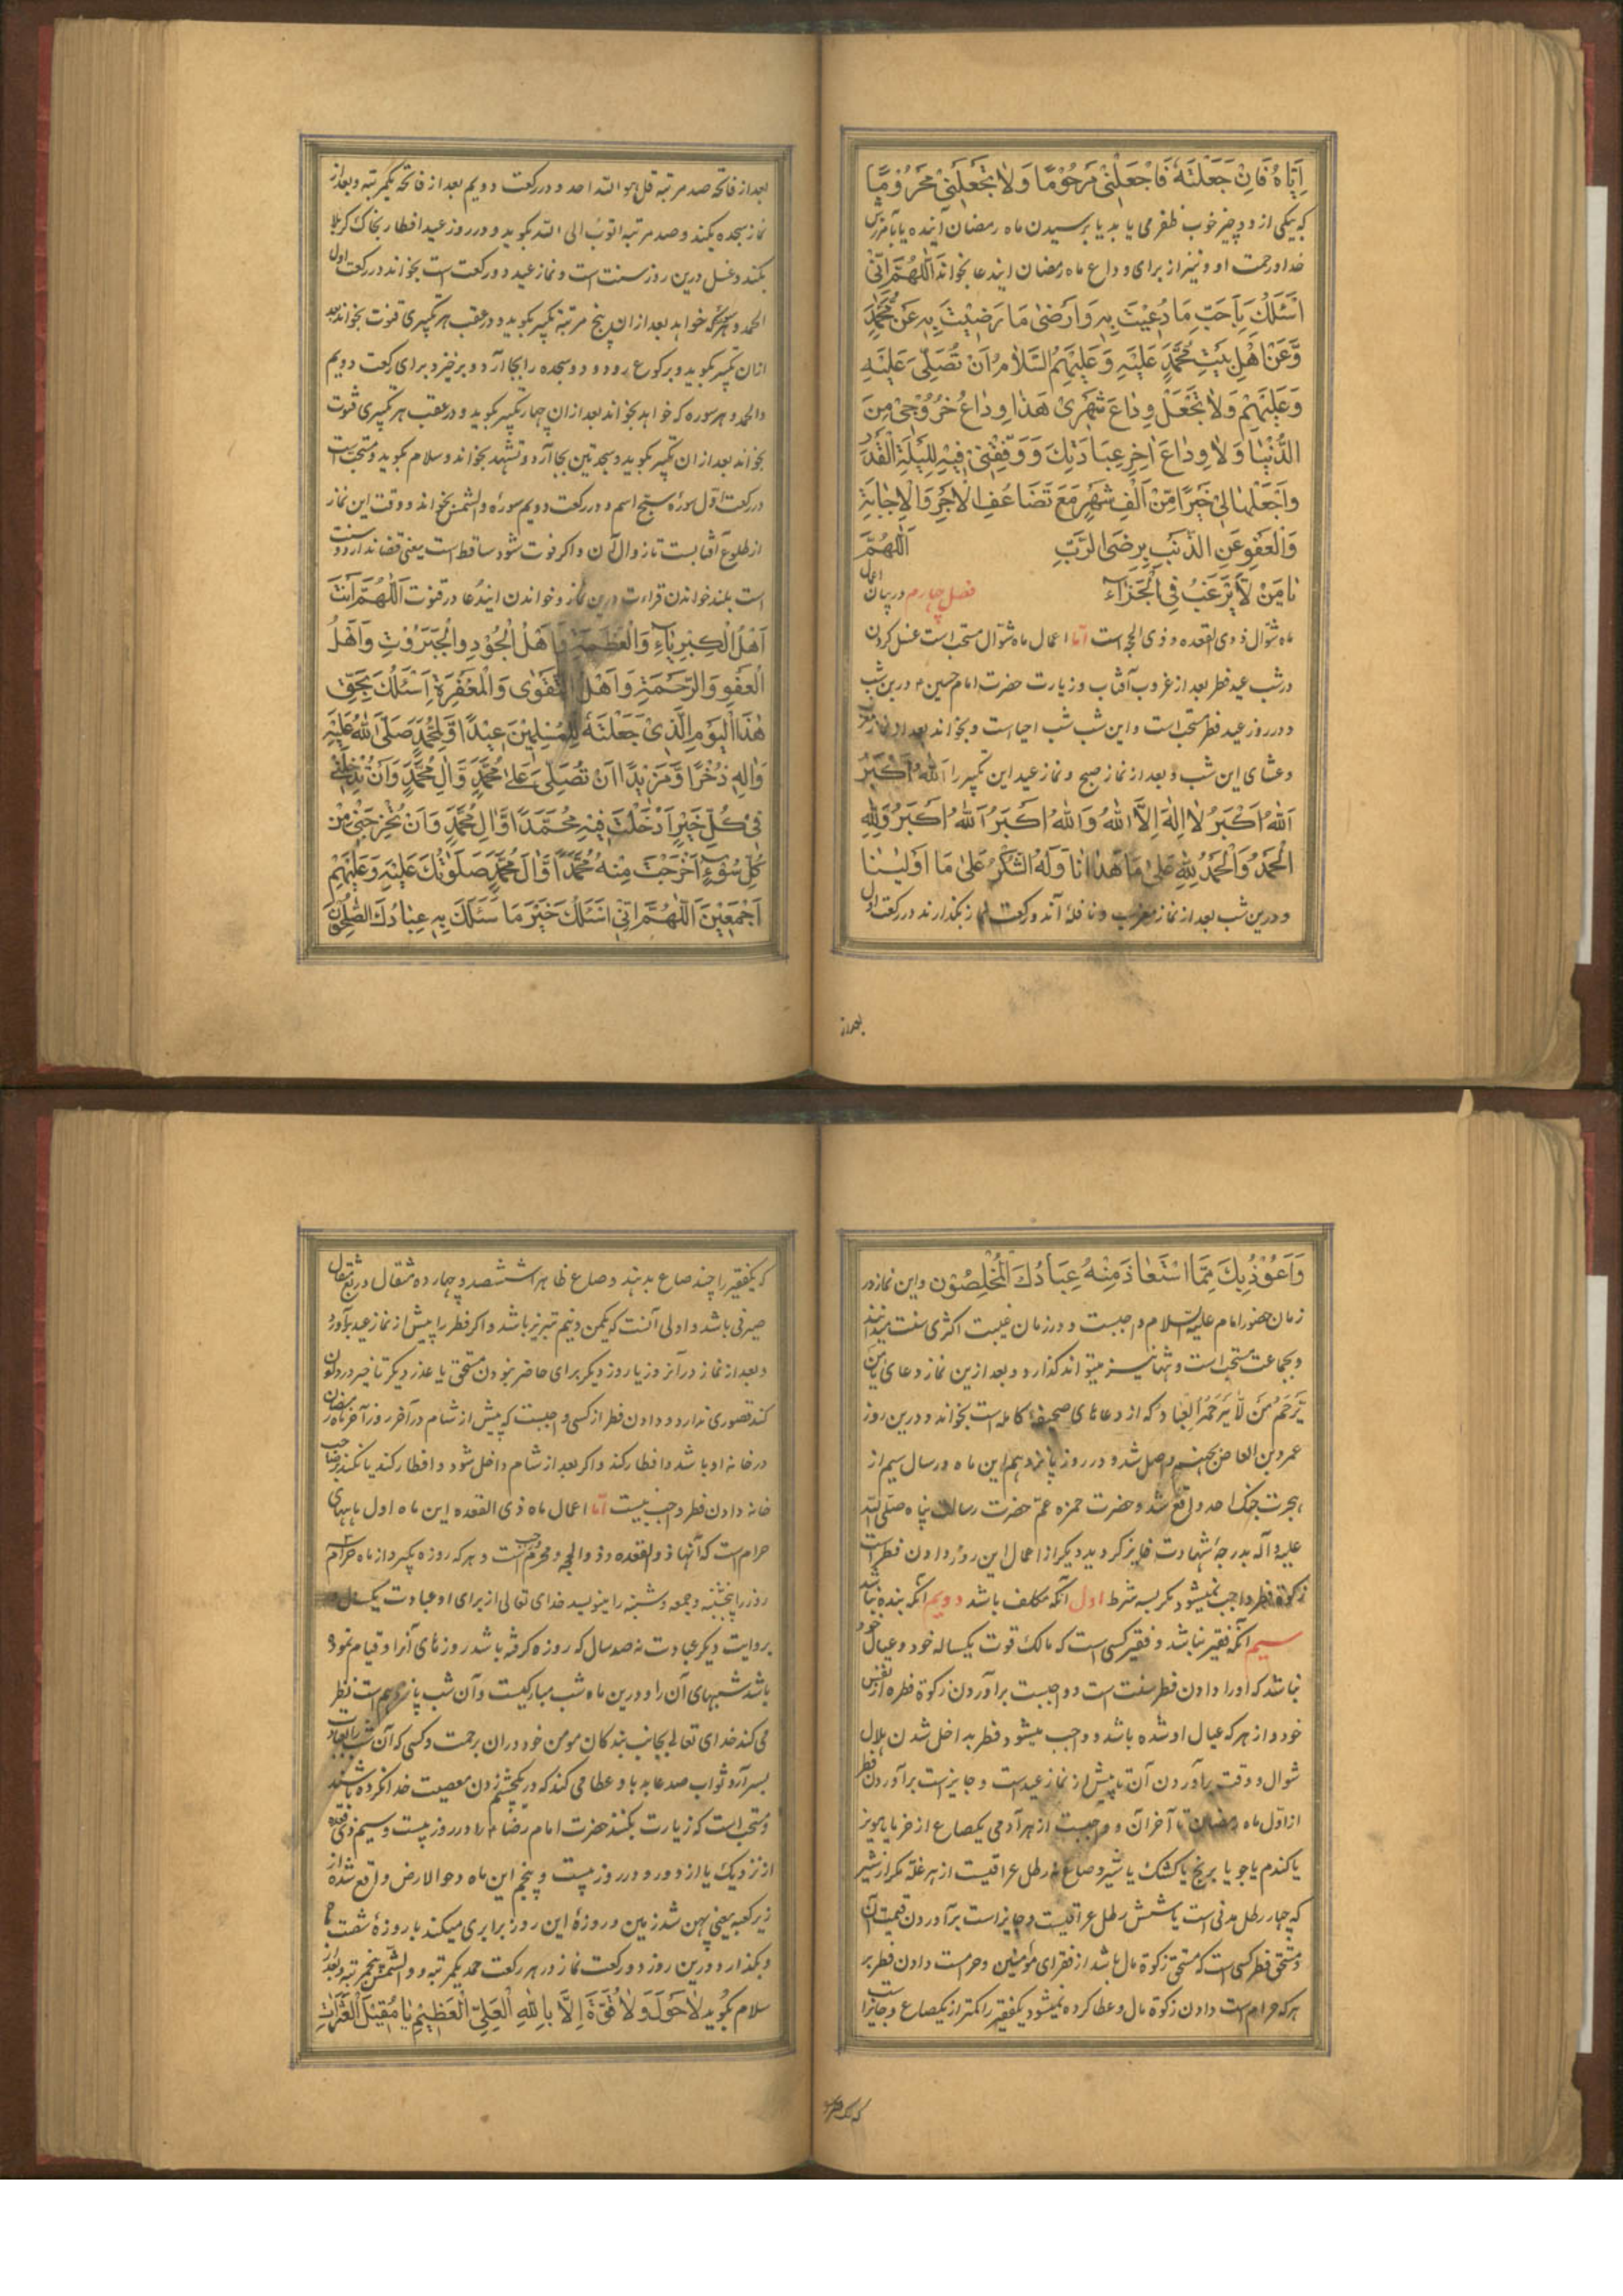 اِیّاهُ فَاِنْ جَعَلْتَهُ فَاجْعَلْنی مَرْحُومًا وَلاٰ تَجْعَلْنی مَحْرُومًا
که بیکی از دو چیز خوب ظفر می یابد یا برسیدن ماه رمضان آینده یا بآمرزش
خدا و رحمت او و نیز از برای وداع ماه رمضان ایندعا بخواند اَللّهُمَّ اِنّی
اَسْئَلُكَ بِاَحَبِّ مَا دُعِیتَ بِهِ وَاَرْضیٰ مَا رَضِیتَ بِهِ عَنْ مُحَمَّدٍ
وَعَنْ اَهْلِ بَیْتِ مُحَمَّدٍ عَلَیْهِ وَعَلَیْهِمُ السَّلاٰمُ اَنْ تُصَلِّیَ عَلَیْهِ
وَعَلَیْهِمْ وَلاٰ تَجْعَلْ وِدٰاعَ شَهْری هَذٰا وِدٰاعَ خُرُوجی مِنَ
الدُّنْیٰا وَلاٰ وِدٰاعَ اٰخِرِ عِبَادَتِكَ وَوَفِّقْنی فیهِ لِلَیْلَةِ الْقَدْرِ
وَاجْعَلْهٰا لی خَیْرًا مِنْ اَلْفِ شَهْرٍ مَعَ تَضَاعُفِ الْاَجْرِ وَالْاِجٰابَةِ
وَالْعَفْوِ عَنِ الذَّنْبِ بِرِضَی الرَّبِّ اَللّهُمَّ
یٰا مَنْ لاٰ یَرْغَبُ فِی الْجَزٰآءِ فصل چهارم در بیان اعمال
ماه شوال ذوی القعده و ذی الحجه است اما اعمال ماه شوال مستحب است غسل کردن
در شب عید فطر بعد از غروب آفتاب و زیارت حضرت امام حسین ع در ین شب
و در روز عید فطر مستحب است و این شب شب احیا است و بخواند بعد از نماز مغرب
و عشای این شب و بعد از نماز صبح و نماز عید این تکبیر را اَللهُ اَکْبَرُ
اَللهُ اَکْبَرُ لاٰ اِلهَ اِلاَّ اللهُ وَاللهُ اَکْبَرُ اَللهُ اَکْبَرُ وَلِلّٰهِ
الْحَمْدُ وَالْحَمْدُ لِلّٰهِ عَلیٰ مَا هَدٰانَا وَلَهُ الشُّکْرُ عَلیٰ مَا اَوْلیٰنٰا
و درین شب بعد از نماز مغرب و نافله آن دو رکعت نماز بگذارند در رکعت اول
بعد از
بعد از فاتحه صد مرتبه قل هو الله احد و در رکعت دویم بعد از فاتحه یکمرتبه و بعد از
نماز سجده بکند و صد مرتبه اتوب الی الله بکوید و در روز عید افطار بخاك کربلا
بکند و غسل درین روز سنت است و نماز عید دو رکعت است بخواند در رکعت اول
الحمد و هر سوره که خواهد بعد از ان پنج مرتبه تکبیر بکوید و در عقب هر تکبیری قنوت بخواند بعد
ازان تکبیر بکوید و برکوع رود و دو سجده را بجا آرد و برخیزد برای رکعت دویم
والحمد و هر سوره که خواهد بخواند بعد از ان چهار تکبیر بکوید و در عقب هر تکبیری قنوت
بخواند بعد از ان تکبیر بکوید و سجدتین بجا آرد و تشهد بخواند و سلام بکوید و مستحب است
در رکعت اول سوره سبح اسم و در رکعت دویم سوره والشمس بخواند و وقت این نماز
از طلوع آفتابست تا زوال آن و اکر فوت شود ساقط است یعنی قضا ندارد و سنت
است بلند خواندن قراءت درین نماز و خواندن ایندعا در قنوت اَللّهُمَّ اَنْتَ
اَهْلُ الْکِبْرِیٰآءِ وَالْعَظَمَةِ وَاَهْلَ الْجُودِ وَالْجَبَرُوتِ وَاَهْلَ
الْعَفْوِ وَالرَّحْمَةِ وَاَهْلَ التَّقْوٰی وَالْمَغْفِرَةِ اَسْئَلُكَ بِحَقِّ
هٰذَا الْیَوْمِ الَّذی جَعَلْتَهُ لِلْمُسْلِمینَ عیدًا وَلِمُحَمَّدٍ صَلَّی اللهُ عَلَیْهِ
وَاٰلِهِ ذُخْرًا وَمَزیدًا اَنْ تُصَلِّیَ عَلیٰ مُحَمَّدٍ وَاٰلِ مُحَمَّدٍ وَاَنْ تُدْخِلَنی
فی کُلِّ خَیْرٍ اَدْخَلْتَ فیهِ مُحَمَّدًا وَاٰلَ مُحَمَّدٍ وَاَنْ تُخْرِجَنی مِنْ
کُلِّ سُوءٍ اَخْرَجْتَ مِنْهُ مُحَمَّدًا وَاٰلَ مُحَمَّدٍ صَلَوٰتُكَ عَلَیْهِ وَعَلَیْهِمْ
اَجْمَعینَ اَللّهُمَّ اِنّی اَسْئَلُكَ خَیْرَ مَا سَئَلَكَ بِهِ عِبٰادُكَ الصّٰلِحُونَ
وَاَعُوذُ بِكَ مِمَّا اسْتَعٰاذَ مِنْهُ عِبَادُكَ الْمُخْلِصُوْن و این نماز در
زمان حضور امام علیه السلام واجبست و در زمان غیبت اکثری سنت میدانند
و بجماعت مستحب است و تنها نیز میتواند کذارد و بعد ازین نماز دعای یٰا مَنْ
یَرْحَمُ مَنْ لاٰ یَرْحَمُهُ الْعِبٰاد که از دعاهای صحیفه کامله است بخواند و درین روز
عمرو بن العاص بجهنم واصل شد و در روز پانزدهم این ماه و در سال سیم از
هجرت جنك احد واقع شد و حضرت حمزه عم حضرت رسالت پناه صلی الله
علیه وآله بدرجه شهادت فایز کردید دیکر از اعمال این روز دادن فطر است
زکوة فطر واجب نمیشود مکر بسه شرط اول آنکه مکلف باشد دویم آنکه بنده نباشد
سیم آنکه فقیر نباشد و فقیر کسی است که مالك قوت یکساله خود و عیال خود
نباشد که او را دادن فطر سنت است و واجبست برآوردن زکوة فطره از نفس
خود و از هر که عیال او شده باشد و واجب میشود فطر بداخل شدن هلال
شوال و وقت برآوردن آن تا پیش از نماز عید است و جایز است برآوردن فطر
از اول ماه رمضان تا آخر آن و واجبست از هر آدمی یکصاع از خرما یا مویز
یا کندم یا جو یا برنج یا کشك یا شیر و صاع نه رطل عراقیست از هر غله مکر از شیر
که چهار رطل مدنی است یا شش رطل عراقیست و جایز است برآوردن قیمت آن
و مستحق فطر کسی است که مستحق زکوة مال باشد از فقرای مؤمنین و حرامست دادن فطر بر
هر که حرام است دادن زکوة مال و عطا کرده نمیشود یکفقیر را کمتر از یکصاع و جایز است
که یکفقیر را
که یکفقیر را چند صاع بدهند و صاع ظاهرا ششصد و چهارده مثقال و ربع مثقال
صیرفی باشد و اولی آنست که یکمن و نیم تبریز باشد و اکر فطر را پیش از نماز عید برآورد
و بعد از نماز در آنروز یا روز دیکر برای حاضر نبودن مستحق یا عذر دیکر تاخیر در دادن
کند قصوری ندارد و دادن فطر از کسی واجبست که پیش از شام در آخر روز آخر ماه رمضان
در خانه او باشد و افطار کند و اکر بعد از شام داخل شود و افطار کند یا نکند بر صاحب
خانه دادن فطر واجب نیست اما اعمال ماه ذی القعده این ماه اول ماههای
حرام است که آنها ذو القعده و ذو الحجه و محرم و رجب است و هر که روزه بگیرد از ماه حرام سه
روز را پنجشنبه و جمعه و شنبه را بنویسد خدای تعالی از برای او عبادت یکسال و
بروایت دیکر عبادت نه صد سال که روزه کرفته باشد روزهای آنرا و قیام نموده
باشد شبهای آن را و درین ماه شب مبارکیست و آن شب پانزدهم است نظر
می کند خدای تعالی بجانب بندکان مومن خود در ان برحمت و کسی که آن شب را بعبادت
بسر آرد ثواب صد عابد باو عطا می کند که در یکچشم زدن معصیت خدا نکرده باشند
و مستحب است که زیارت بکنند حضرت امام رضا ع را در روز بیست و سیم ذی قعده
از نزدیك یا از دور و در روز بیست و پنجم این ماه دحو الارض واقع شده از
زیر کعبه یعنی پهن شد زمین و روزه این روز برابری میکند با روزه شصت ماه
و بکذارد درین روز دو رکعت نماز در هر رکعت حمد یکمرتبه و والشمس پنجمرتبه و بعد از
سلام بکوید لاٰ حَوْلَ وَلاٰ قُوَّةَ اِلاَّ بِاللهِ الْعَلِیِّ الْعَظیمِ یٰا مُقیلَ الْعَثَرٰاتِ